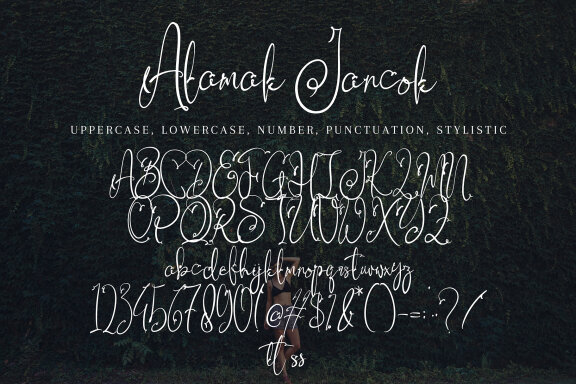 Alamak Jancok
UPPERCASE, LOWERCASE, NUMBER, PUNCTUATION, STYLISTIC
ABCDEFGHIJKLMN
OPQRSTUVWXYZ
abcdefhijklmnopqrstuvwxyz
1234567890!@#$%&*()-=:.,?/
tt ss